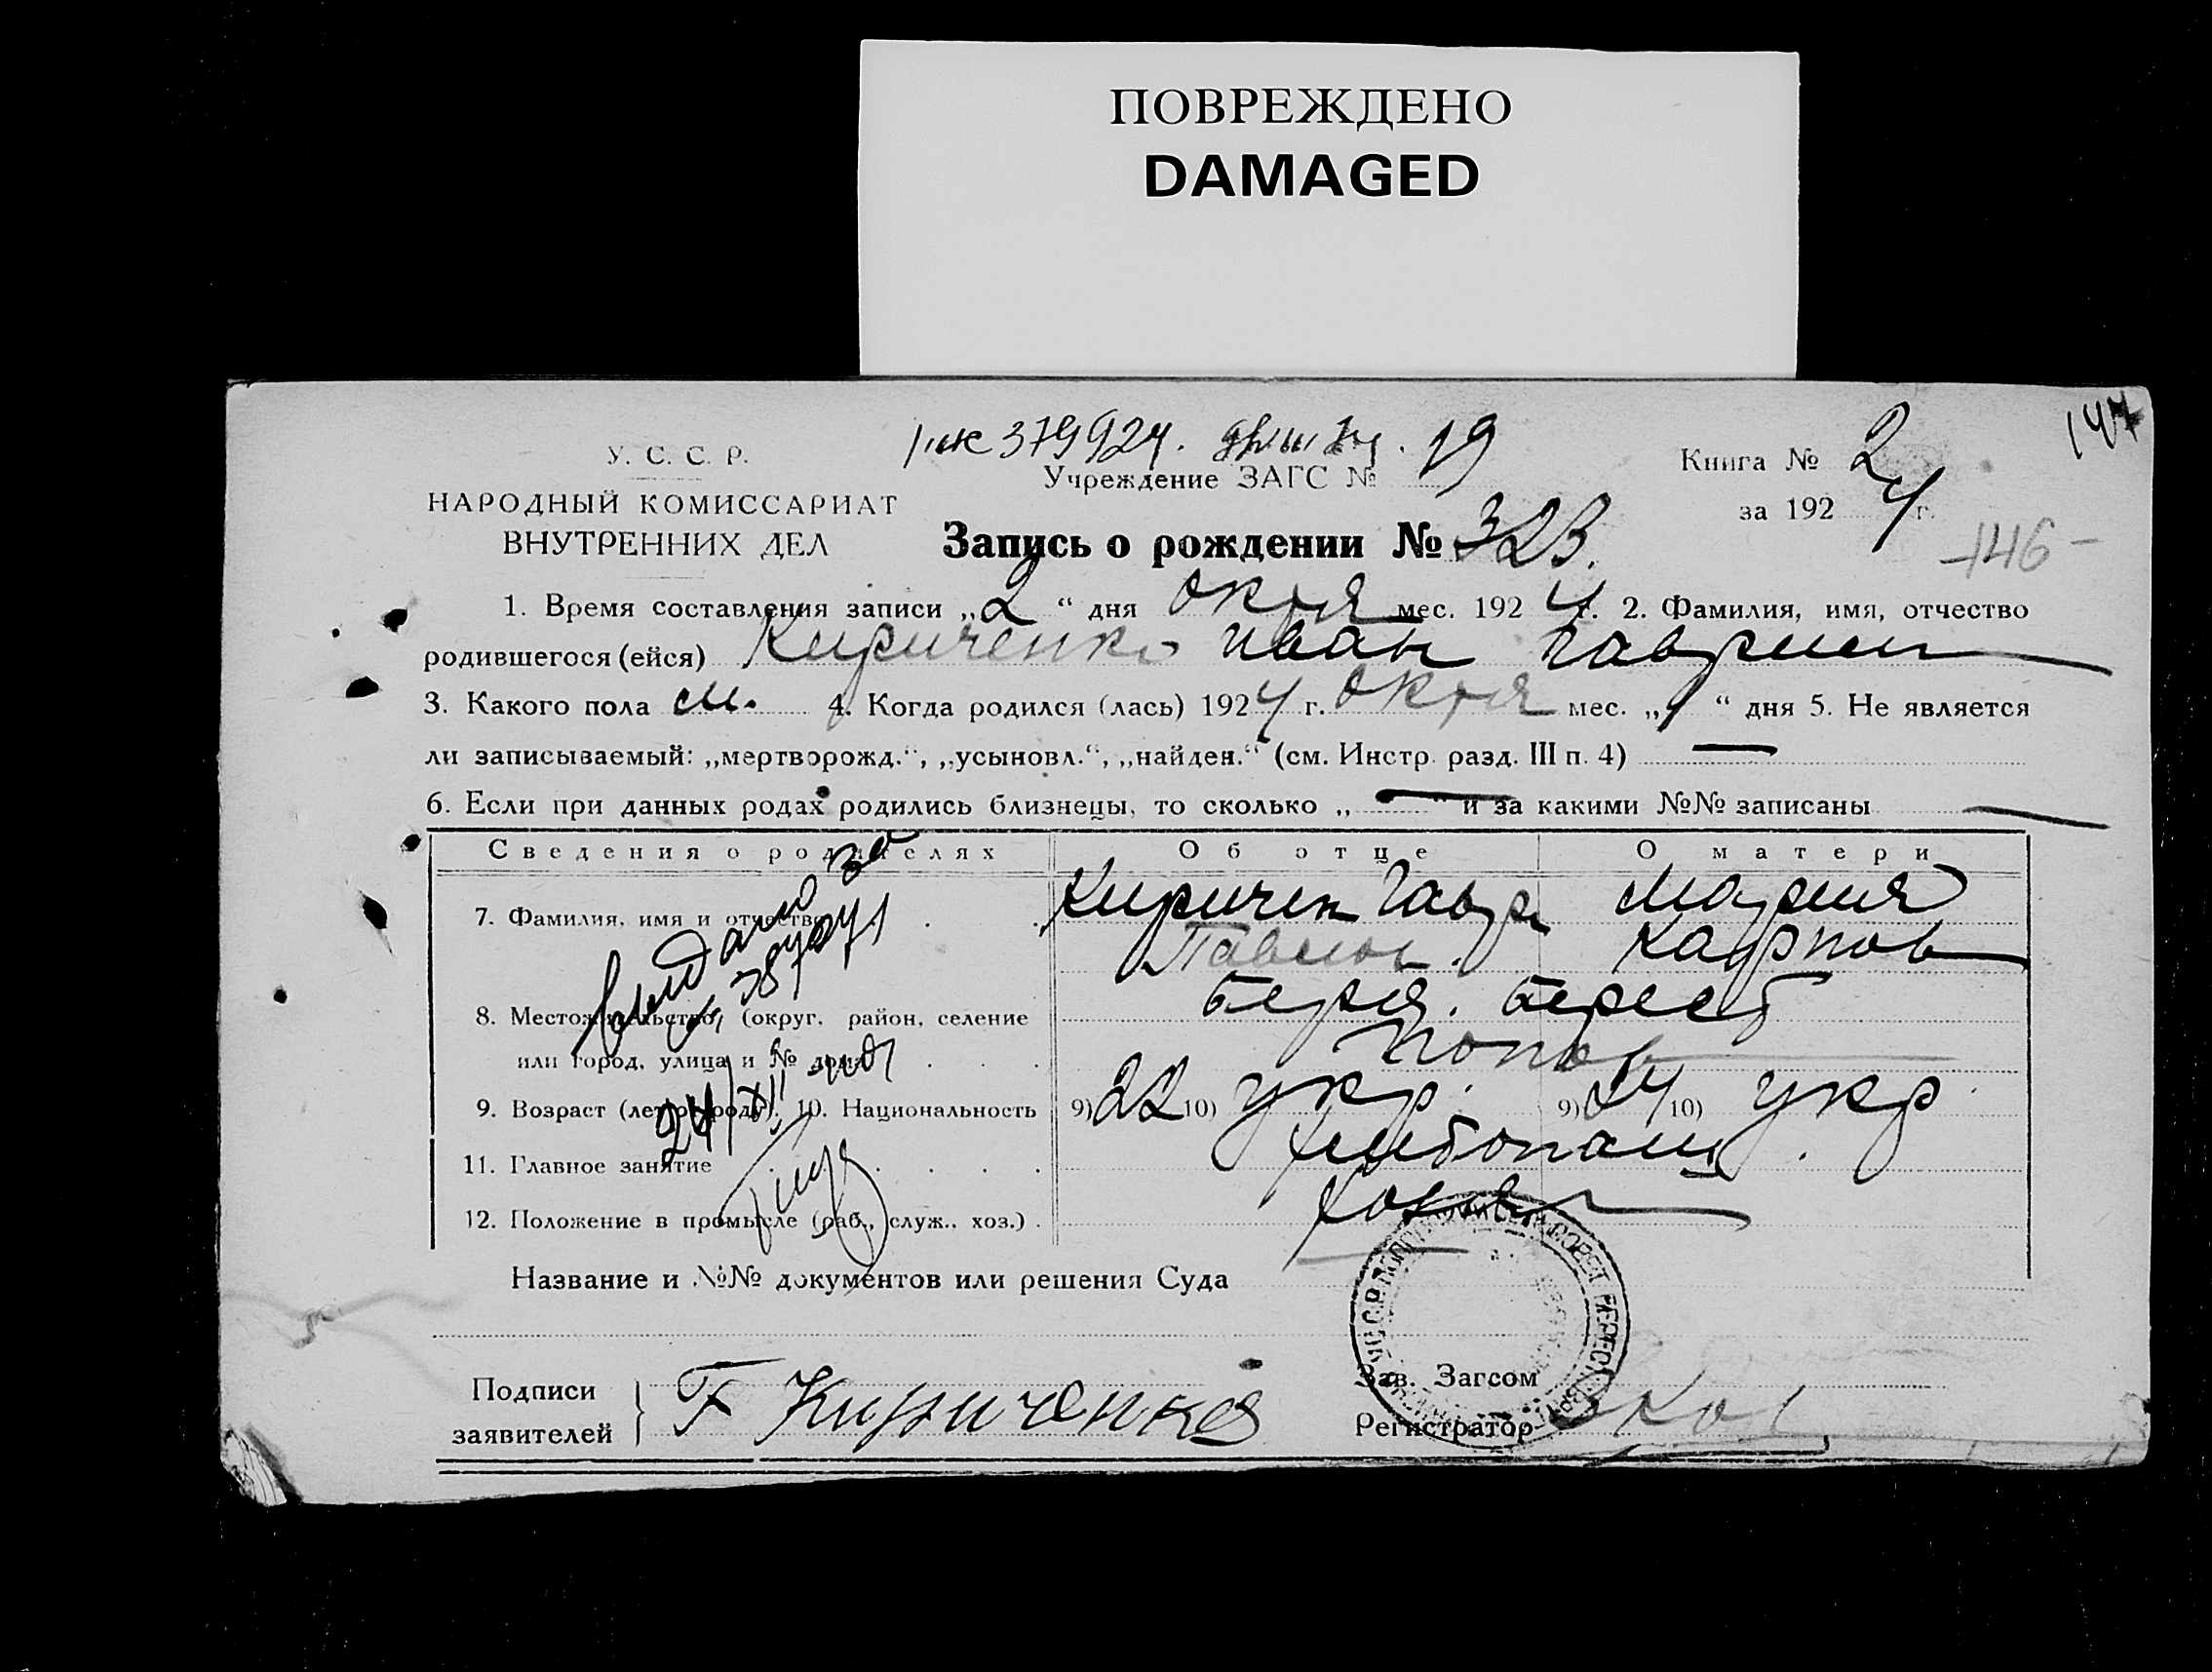 ПОВРЕЖДЕНО
DAMAGED
144
379924. 19
У. С. С. Р.
Учреждение ЗАГС №
Книга № 2
НАРОДНЫЙ КОМИССАРИАТ
за 1924 г.
ВНУТРЕННИХ ДЕЛ
Запись о рождении № 323.
146
1. Время составления записи „2“ дня октя мес. 1924 г. 2. Фамилия, имя, отчество
родившегося (ейся) Кириченко Иван Гаврил
3. Какого пола м. 4. Когда родился (лась) 1924 г. октя мес. „1“ дня 5. Не является
ли записываемый: „мертворожд.“, „усыновл.“, „найден.“ (см. Инстр. разд. III п. 4) —
6. Если при данных родах родились близнецы, то сколько „—“ и за какими №№ записаны —
Сведения о родителях Об отце О матери
7. Фамилия, имя и отчество . . . Киричен Гавр Мария
Павлов. Карпов
8. Местожительство, (округ, район, селение Берд. Берест
или город, улица и № дома) . . . Попов
9. Возраст (лет от роду). 10. Национальность 9) 22 10) укр. 9) 24 10) укр.
11. Главное занятие . . . . Хлебопаш.
12. Положение в промысле (раб., служ., хоз.) . Хозяин
выдано за
24/XII
Название и №№ документов или решения Суда
Подписи
заявителей
Г Кириченко
Зав. Загсом
Регистратор